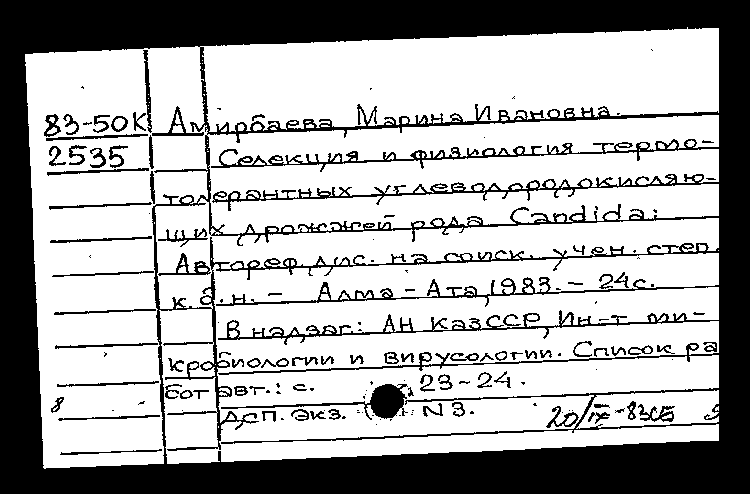 83-50К Амирбаева, Марина Ивановна.
2535 Селекция и физиология термо-
толерантных углеводородокисляю-
щих дрожжей рода Candida:
Автореф. дис. на соиск. учен. степ.
к.б.н. – Алма-Ата, 1983. – 24с.
В надзаг.: АН КазССР, Ин-т ми-
кробиологии и вирусологии. Список ра
бот авт.: с. 23-24.
8 ДСП. Экз. N 3. 20/IX-83